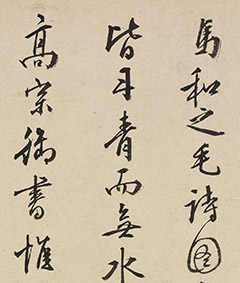 馬和之毛詩圖
皆丹青而無水
高宗補書惟